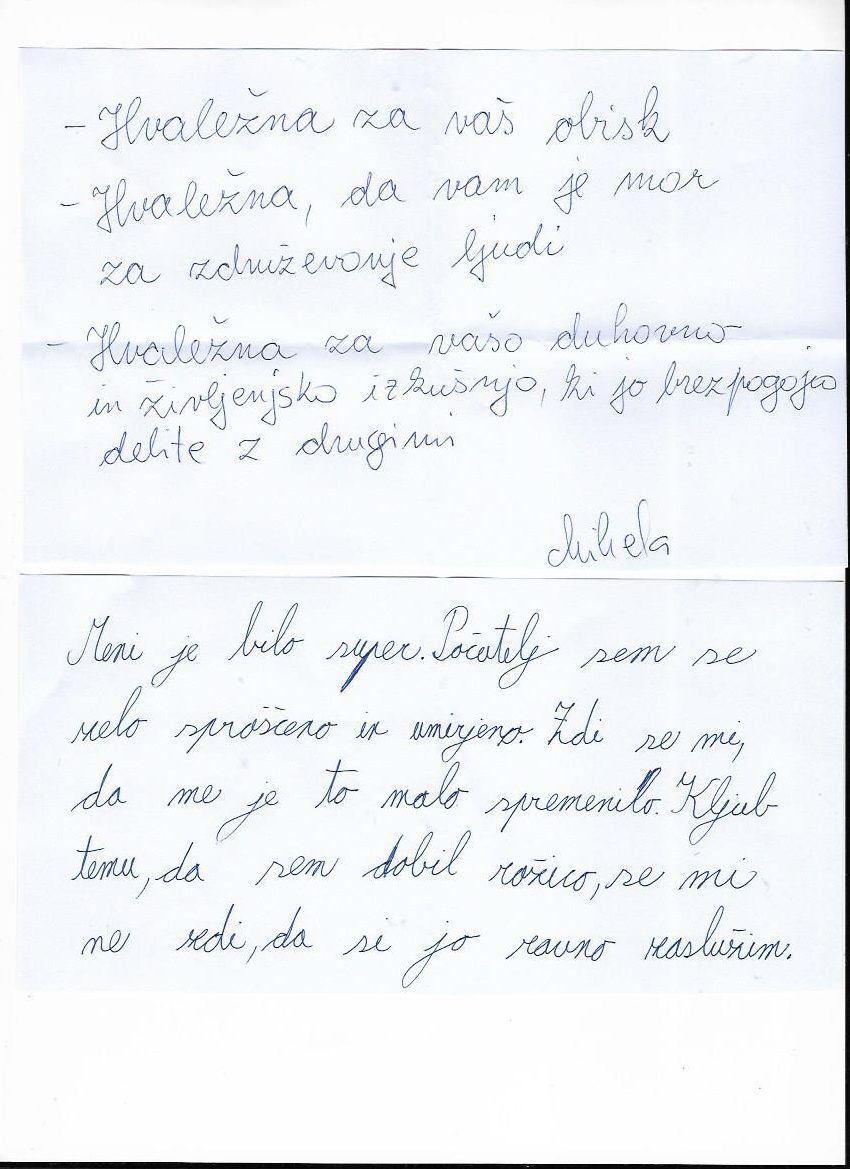 - Hvaležna za vaš obisk
- Hvaležna, da vam je mar
za združevanje ljudi
- Hvaležna za vašo duhovno
in življenjsko izkušnjo, ki jo brezpogojno
delite z drugimi
Mihela
Meni je bilo super. Počutelj sem se
zelo sproščeno in umirjeno. Zdi se mi,
da me je to malo spremenilo. Kljub
temu, da sem dobil rožico, se mi
ne zdi, da si jo ravno zaslužim.